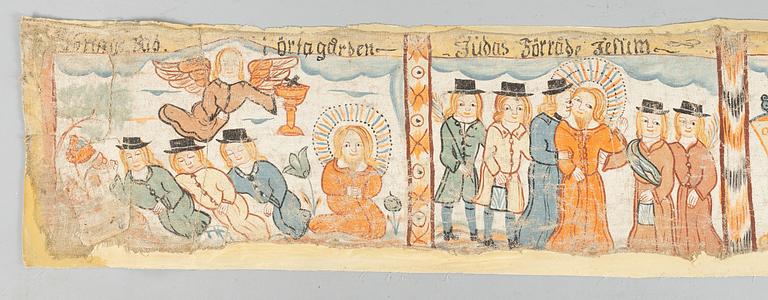 i örtagården
Judas Förråde Jesum